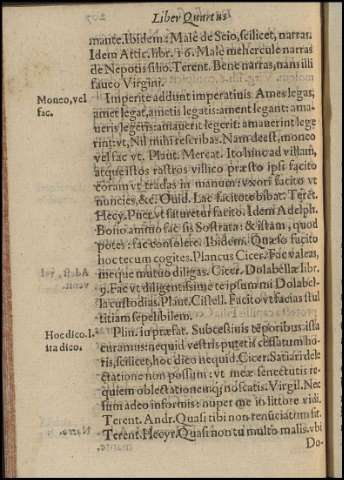 Liber Quartus
mante. Ibidem: Malè de Scio, scilicet, narras.
Idem Attic. libr. 16. Male mehercule narras
de Nepotis filio. Terent. Bene narras, nam illi
fauco Virgini.
Moneo, vel
fac.
Imperite addunt imperatiuis Ames legas,
amet legat, ametis legatis: ament legant: ama-
ueris legeris: amauerit legerit: amauerint lege
rint, vt, Nil mihi rescribas. Nam deest, moneo
vel fac vt. Plaut. Mercat. Ito hinc ad villam,
atque istos rastros villico præsto ipsi facito
coram vt tradas in manum: vxori facito vt
nuncies, &c. Ouid. Lac facito bibat. Terẽt.
Hecy. Puer vt saturetur facito. Idem Adelph.
Bono animo fac sis Sostrata: & istam, quod
potes: fac consolere. Ibidem. Quæso facito
hoc tecum cogites. Plancus Cicer. Fac valeas,
meque mutuo diligas. Cicer. Dolabellæ libr.
9. Fac vt diligentissimè te ipsum mi Dolabel-
la custodias. Plaut. Cistell. Facito vt facias stul
titiam sepelibilem.
Hoc dico. I-
ita dico.
Plin. in præfat. Subcesiuis tẽporibus ista
curamus: nequid vestris putetis cessatum ho-
ris, scilicet, hoc dico nequid. Cicer. Satiari dele
ctatione non possum: vt meæ senectutis re-
quiem oblectationemq; noscatis. Virgil. Nec
sum adeo informis: nuper me in littore vidi.
Terent. Andr. Quasi tibi non renuciatum sit.
Terent. Hecyr. Quasi non tu multo malis. vbi
Do-